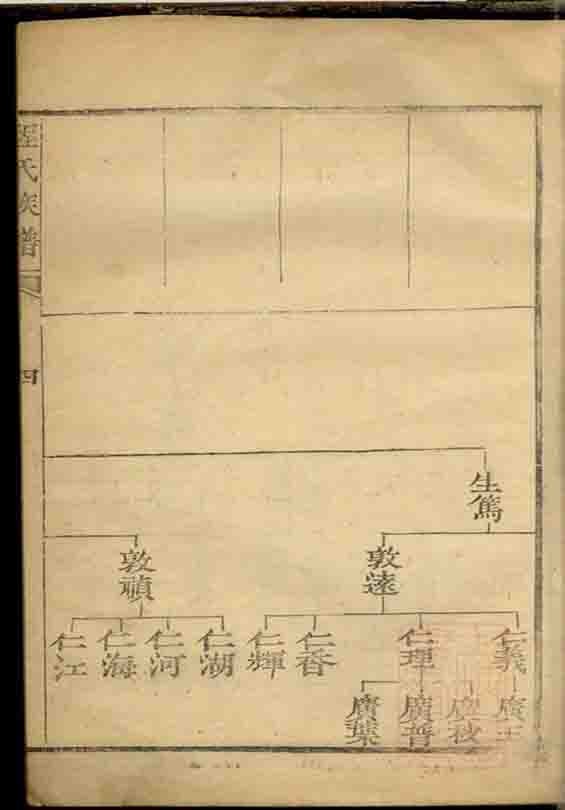 程氏族譜
四
生篤
敦遠
敦禎
仁義
仁理
仁香
仁輝
仁湖
仁河
仁海
仁江
廣玉
廣普
廣葉